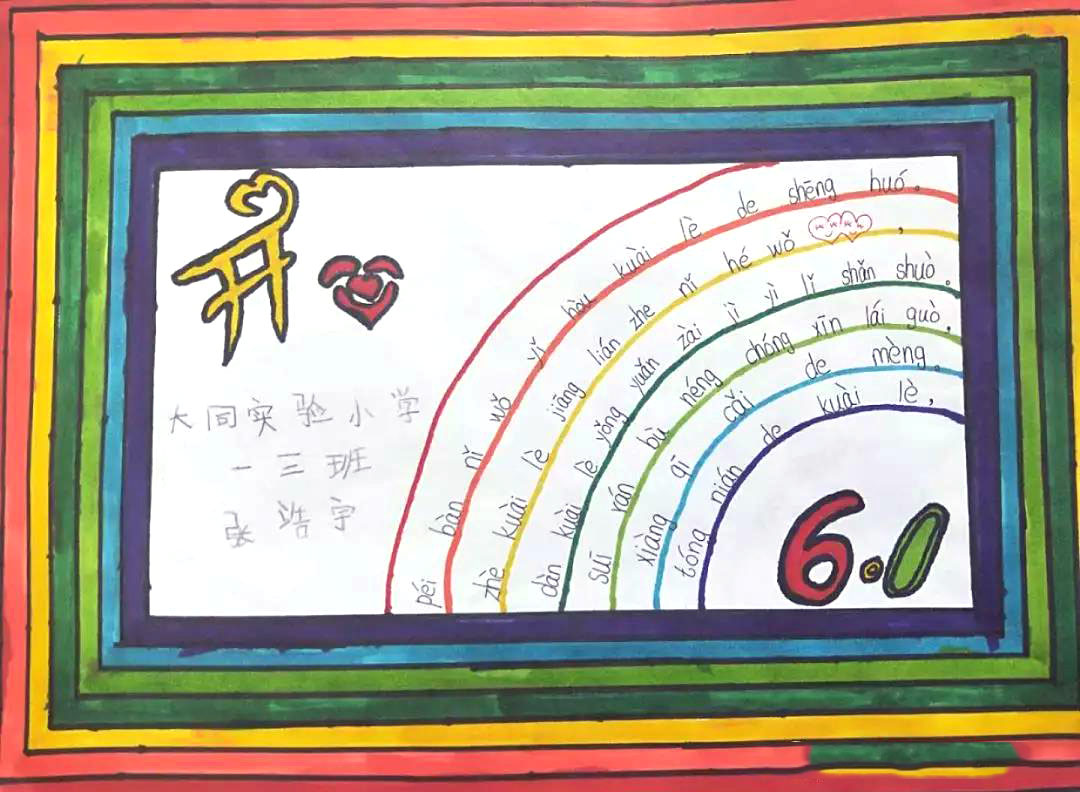 开
大同实验小学
一三班
张浩宇
tóng nián de kuài lè，
xiàng qī cǎi de mèng。
suī rán bù néng chóng xīn lái guò，
dàn kuài lè yǒng yuǎn zài jì yì lǐ shǎn shuò。
zhè kuài lè jiāng lián zhe nǐ hé wǒ，
péi bàn nǐ wǒ yǐ hòu kuài lè de shēng huó。
6.1